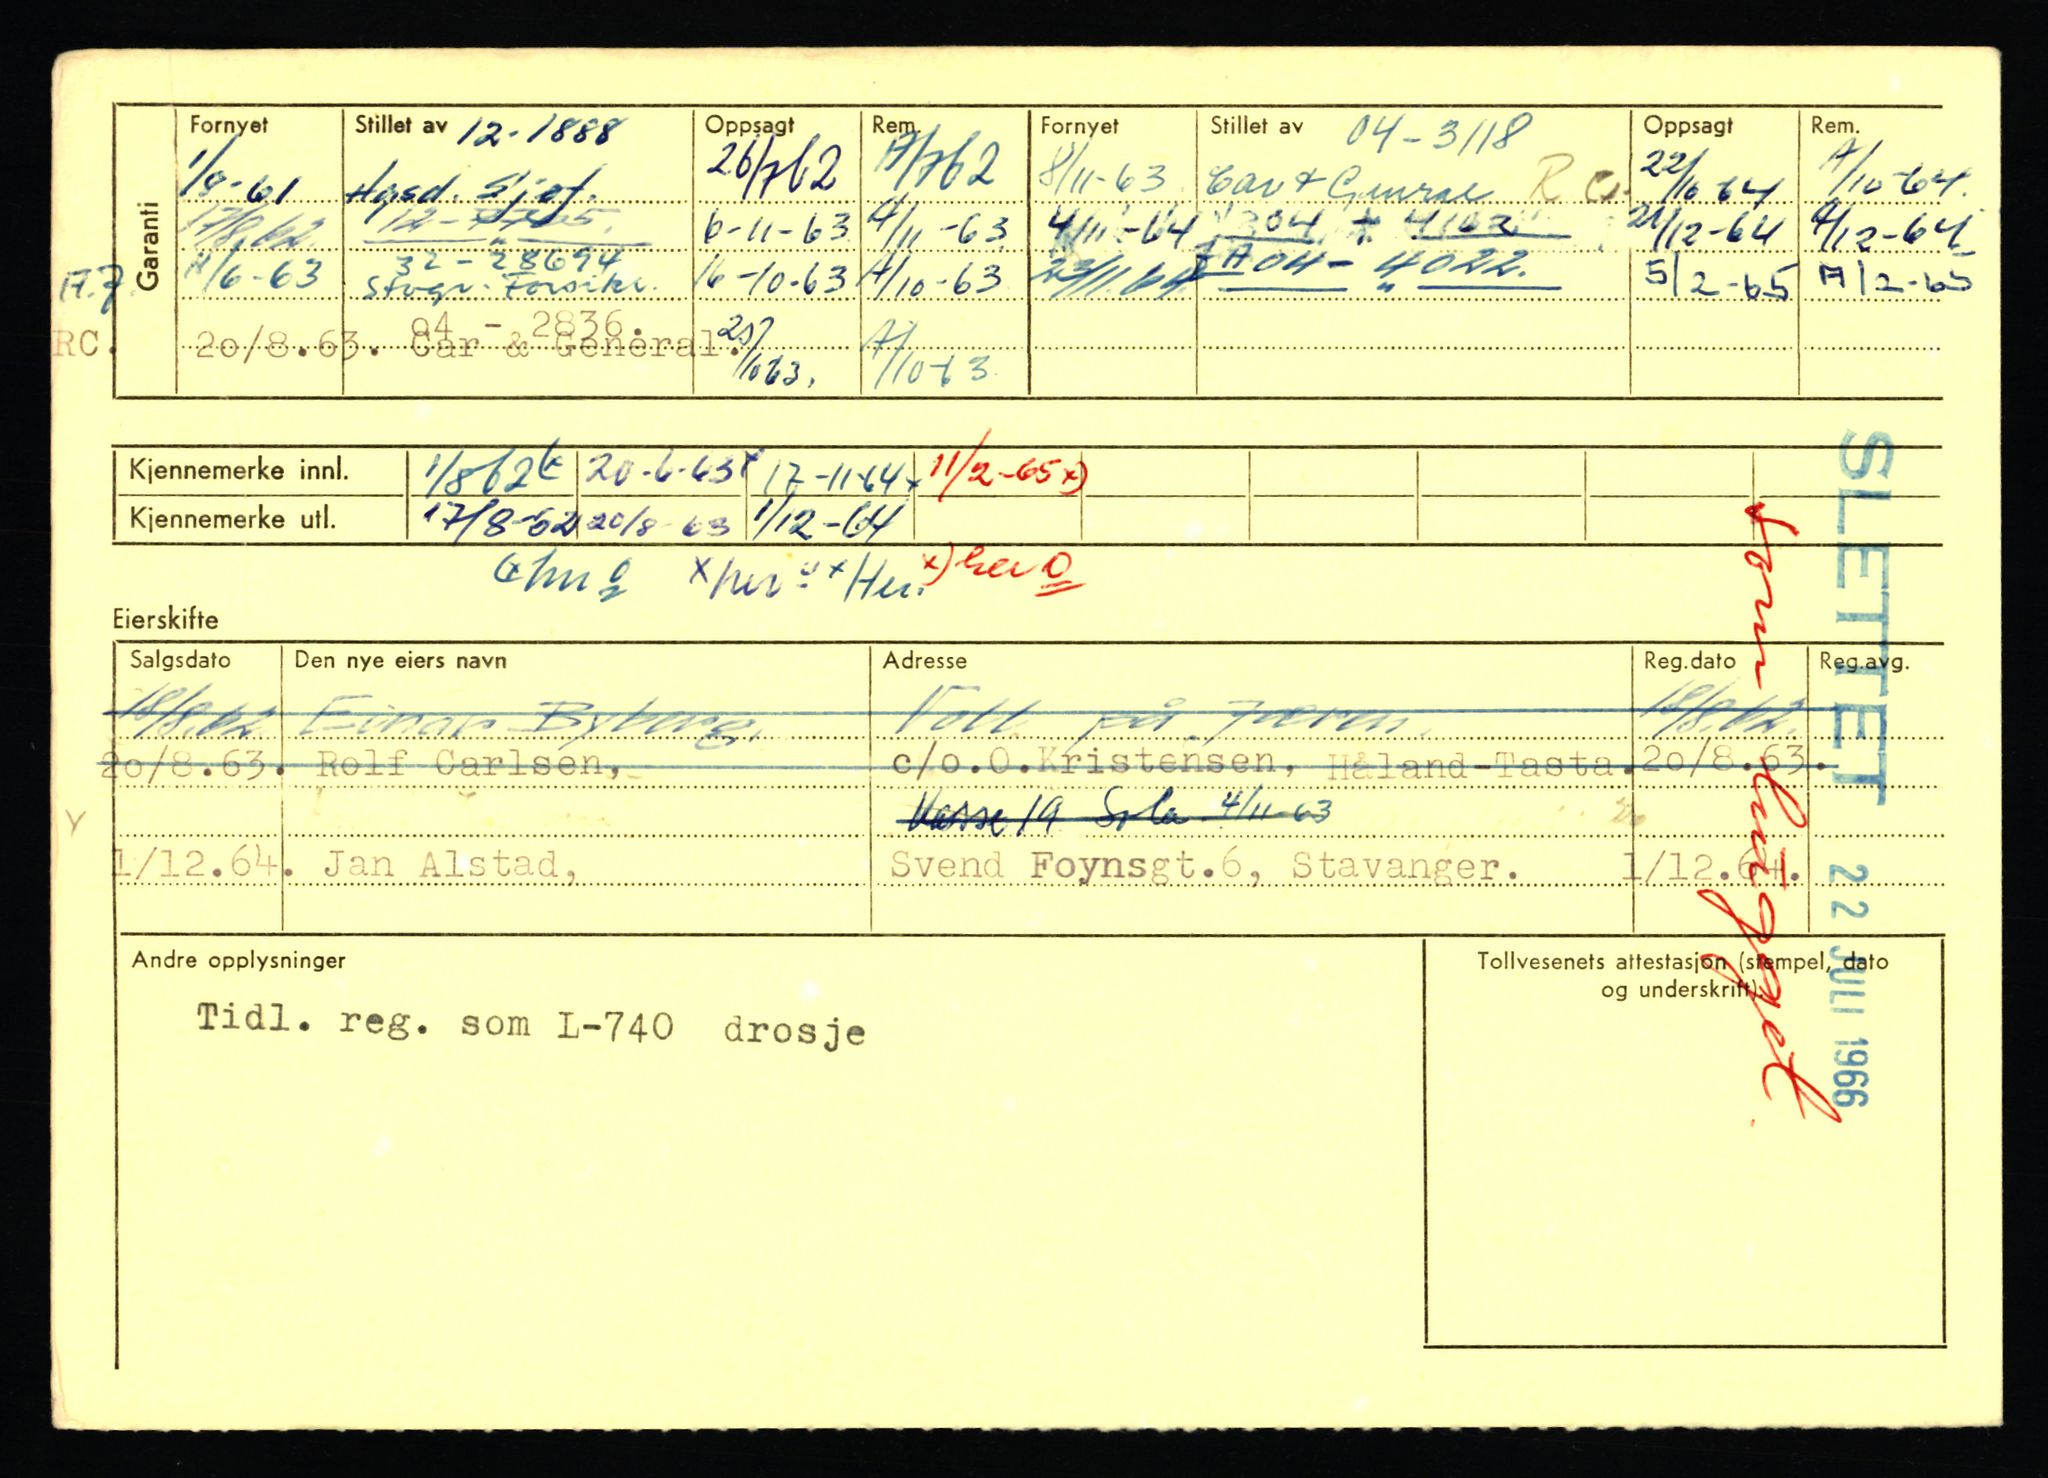 Garanti
Fornyet Stillet av 12-1888 Oppsagt Rem. Fornyet Stillet av 04-3118 Oppsagt Rem.
1/9-61 Hgsd. Sjøf. 26/7 62 A/7 62 8/11-63 Car & General R C. 22/10-64 A/10-64.
17/8.62. 12-7705. 6-11-63 A/11-63 4/11-64 304 4162 21/12-64 A/12-64
A.F. 4/6-63 32-28694 16-10-63 A/10-63 23/11.64 A 04-4022. 5/2-65 A/2-65
Stvgr. Forsikr.
04 - 2836.
RC. 20/8.63. Car & General. 25/10 63. A/10-63
Kjennemerke innl. 1/8 62 20-6-63 17-11-64 x 11/2-65 x)
Kjennemerke utl. 17/8-62 20/8-63 1/12-64
x her x Her. x) her o
Eierskifte
Salgsdato Den nye eiers navn Adresse Reg.dato Reg.avg.
18/8.62. Einar Byberg. Voll på Jæren. 18/8.62.
20/8.63. Rolf Carlsen, c/o.O.Kristensen, Håland-Tasta. 20/8.63.
19 Sola 4/11-63
1/12.64. Jan Alstad, Svend Foynsgt.6, Stavanger. 1/12.64.
Andre opplysninger
Tidl. reg. som L-740 drosje
Tollvesenets attestasjon (stempel, dato
og underskrift)
SLETTET 22 JULI 1966
som hugget